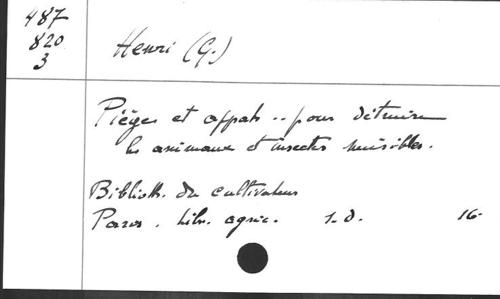 487
820
3
Henri (G.)
Pièges et appats .. pour détruire
les animaux et insectes nuisibles.
Biblioth. du cultivateur
Paris. libr. agric. s.d. 16-